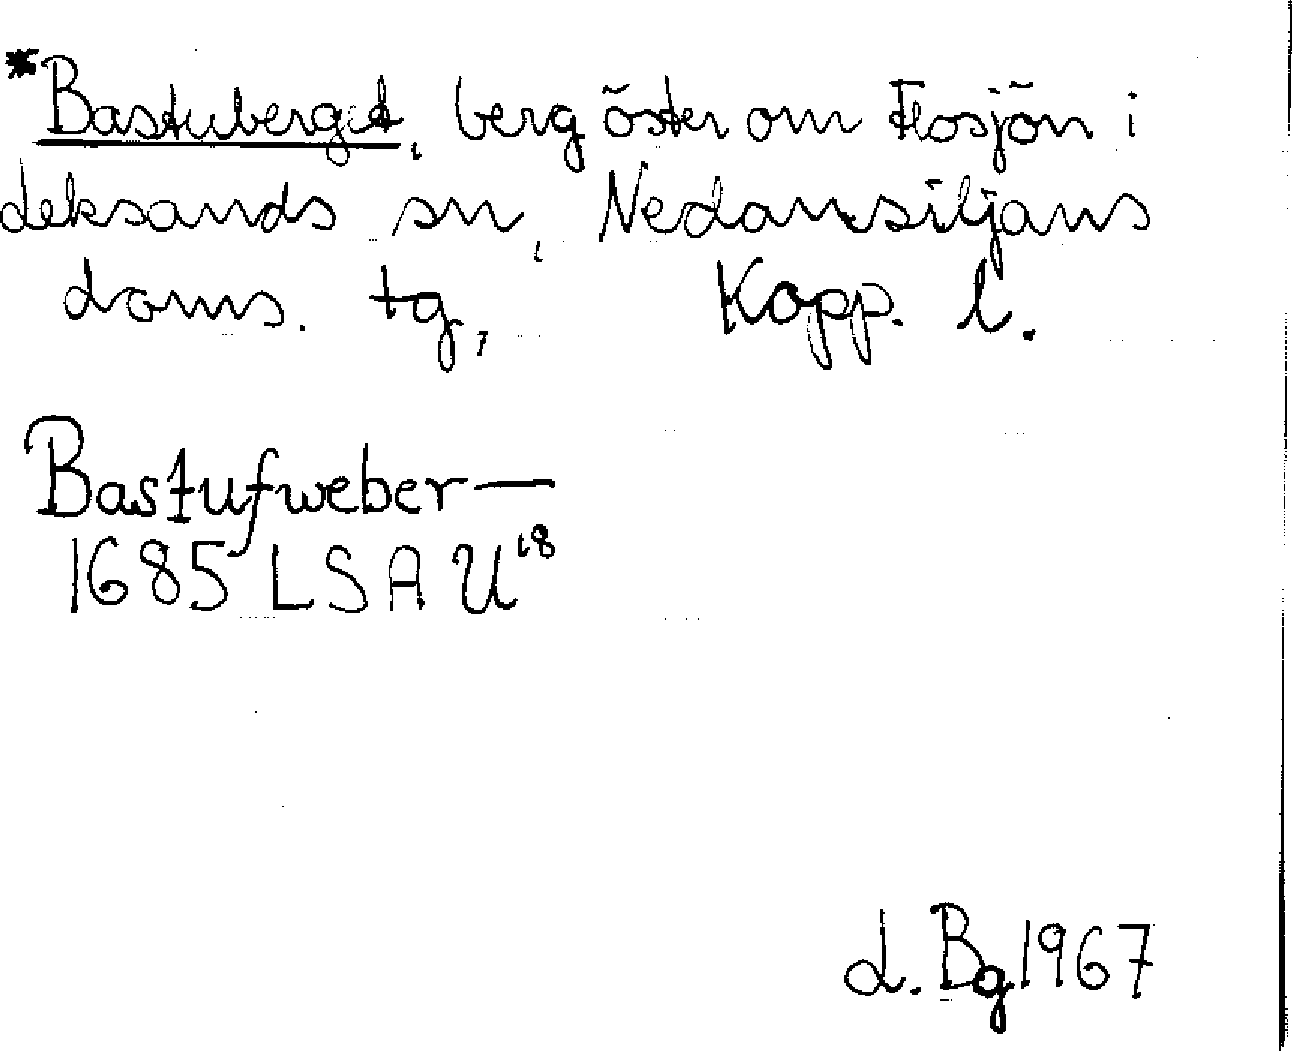 *Bastuberget, berg öster om Flosjön i
Leksands sn, Nedansiljans
doms. tg, Kopp. l.
Bastufweber—
1685 LSA U18
L. Bg 1967